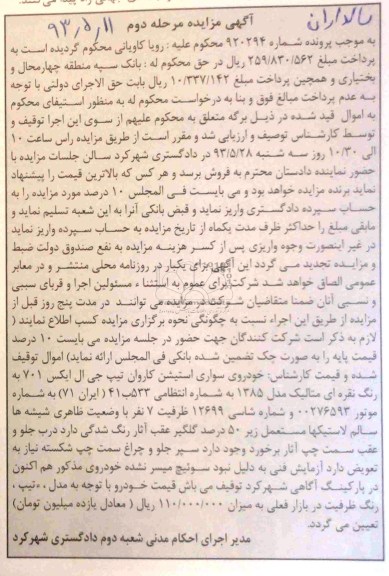 سالاران
۹۳,۵,۱۱
آگهی مزایده مرحله دوم
به موجب پرونده شماره ۹۲۰۲۹۴ محکوم علیه : رویا کاویانی محکوم گردیده است به
پرداخت مبلغ ۲۵۹/۸۳۰/۵۶۲ ریال در حق محکوم له : بانک سپه منطقه چهارمحال و
بختیاری و همچنین پرداخت مبلغ ۱۰/۳۳۷/۱۴۲ ریال بابت حق الاجرای دولتی با توجه
به عدم پرداخت مبالغ فوق و بنا به درخواست محکوم له به منظور استیفای محکوم
به اموال قید شده در ذیل برگه متعلق به محکوم علیهم از سوی این اجرا توقیف و
توسط کارشناس توصیف و ارزیابی شد و مقرر است از طریق مزایده راس ساعت ۱۰
الی ۱۰/۳۰ روز سه شنبه ۹۳/۵/۲۸ در دادگستری شهرکرد سالن جلسات مزایده با
حضور نماینده دادستان محترم به فروش برسد و هر کس که بالاترین قیمت را پیشنهاد
نماید برنده مزایده خواهد بود و می بایست فی المجلس ۱۰ درصد مورد مزایده را به
حساب سپرده دادگستری واریز نماید و قبض بانکی آنرا به این شعبه تسلیم نماید و
مابقی مبلغ را حداکثر ظرف مدت یکماه از تاریخ مزایده به حساب سپرده واریز نماید
در غیر اینصورت وجوه واریزی پس از کسر هزینه مزایده به نفع صندوق دولت ضبط
و مزایده تجدید می گردد این آگهی برای یکبار در روزنامه محلی منتشر و در معابر
عمومی الصاق خواهد شد شرکت برای عموم به استثناء مسئولین اجرا و قربای سببی
و نسبی آنان ضمنا متقاضیان شرکت در مزایده می توانند در مدت پنج روز قبل از
مزایده از طریق این اجراء نسبت به چگونگی نحوه برگزاری مزایده کسب اطلاع نمایند (
لازم به ذکر است شرکت کنندگان جهت حضور در جلسه مزایده می بایست ۱۰ درصد
قیمت پایه را به صورت چک تضمین شده بانکی فی المجلس ارائه نماید) اموال توقیف
شده و قیمت کارشناس: خودروی سواری استیشن کاروان تیپ جی ال ایکس ۷۰۱ به
رنگ نقره ای متالیک مدل ۱۳۸۵ به شماره انتظامی ۵۳۳ب۴۱ ( ایران ۷۱) به شماره
موتور ۰۰۲۷۶۵۹۳ و شماره شاسی ۱۲۶۹۹ ظرفیت ۷ نفر با وضعیت ظاهری شیشه ها
سالم لاستیکها مستعمل زیر ۵۰ درصد گلگیر عقب آثار رنگ شدگی دارد درب جلو و
عقب سمت چپ آثار برخورد وجود دارد سپر جلو و چراغ سمت چپ شکسته نیاز به
تعویض دارد آزمایش فنی به دلیل نبود سوئیچ میسر نشده خودروی مذکور هم اکنون
در پارکینگ آگاهی شهرکرد توقیف می باش قیمت خودرو با توجه به مدل ، ، تیپ ،
رنگ ظرفیت در بازار فعلی به میزان ۱۱۰/۰۰۰/۰۰۰ ریال ( معادل یازده میلیون تومان)
تعیین می گردد.
مدیر اجرای احکام مدنی شعبه دوم دادگستری شهرکرد